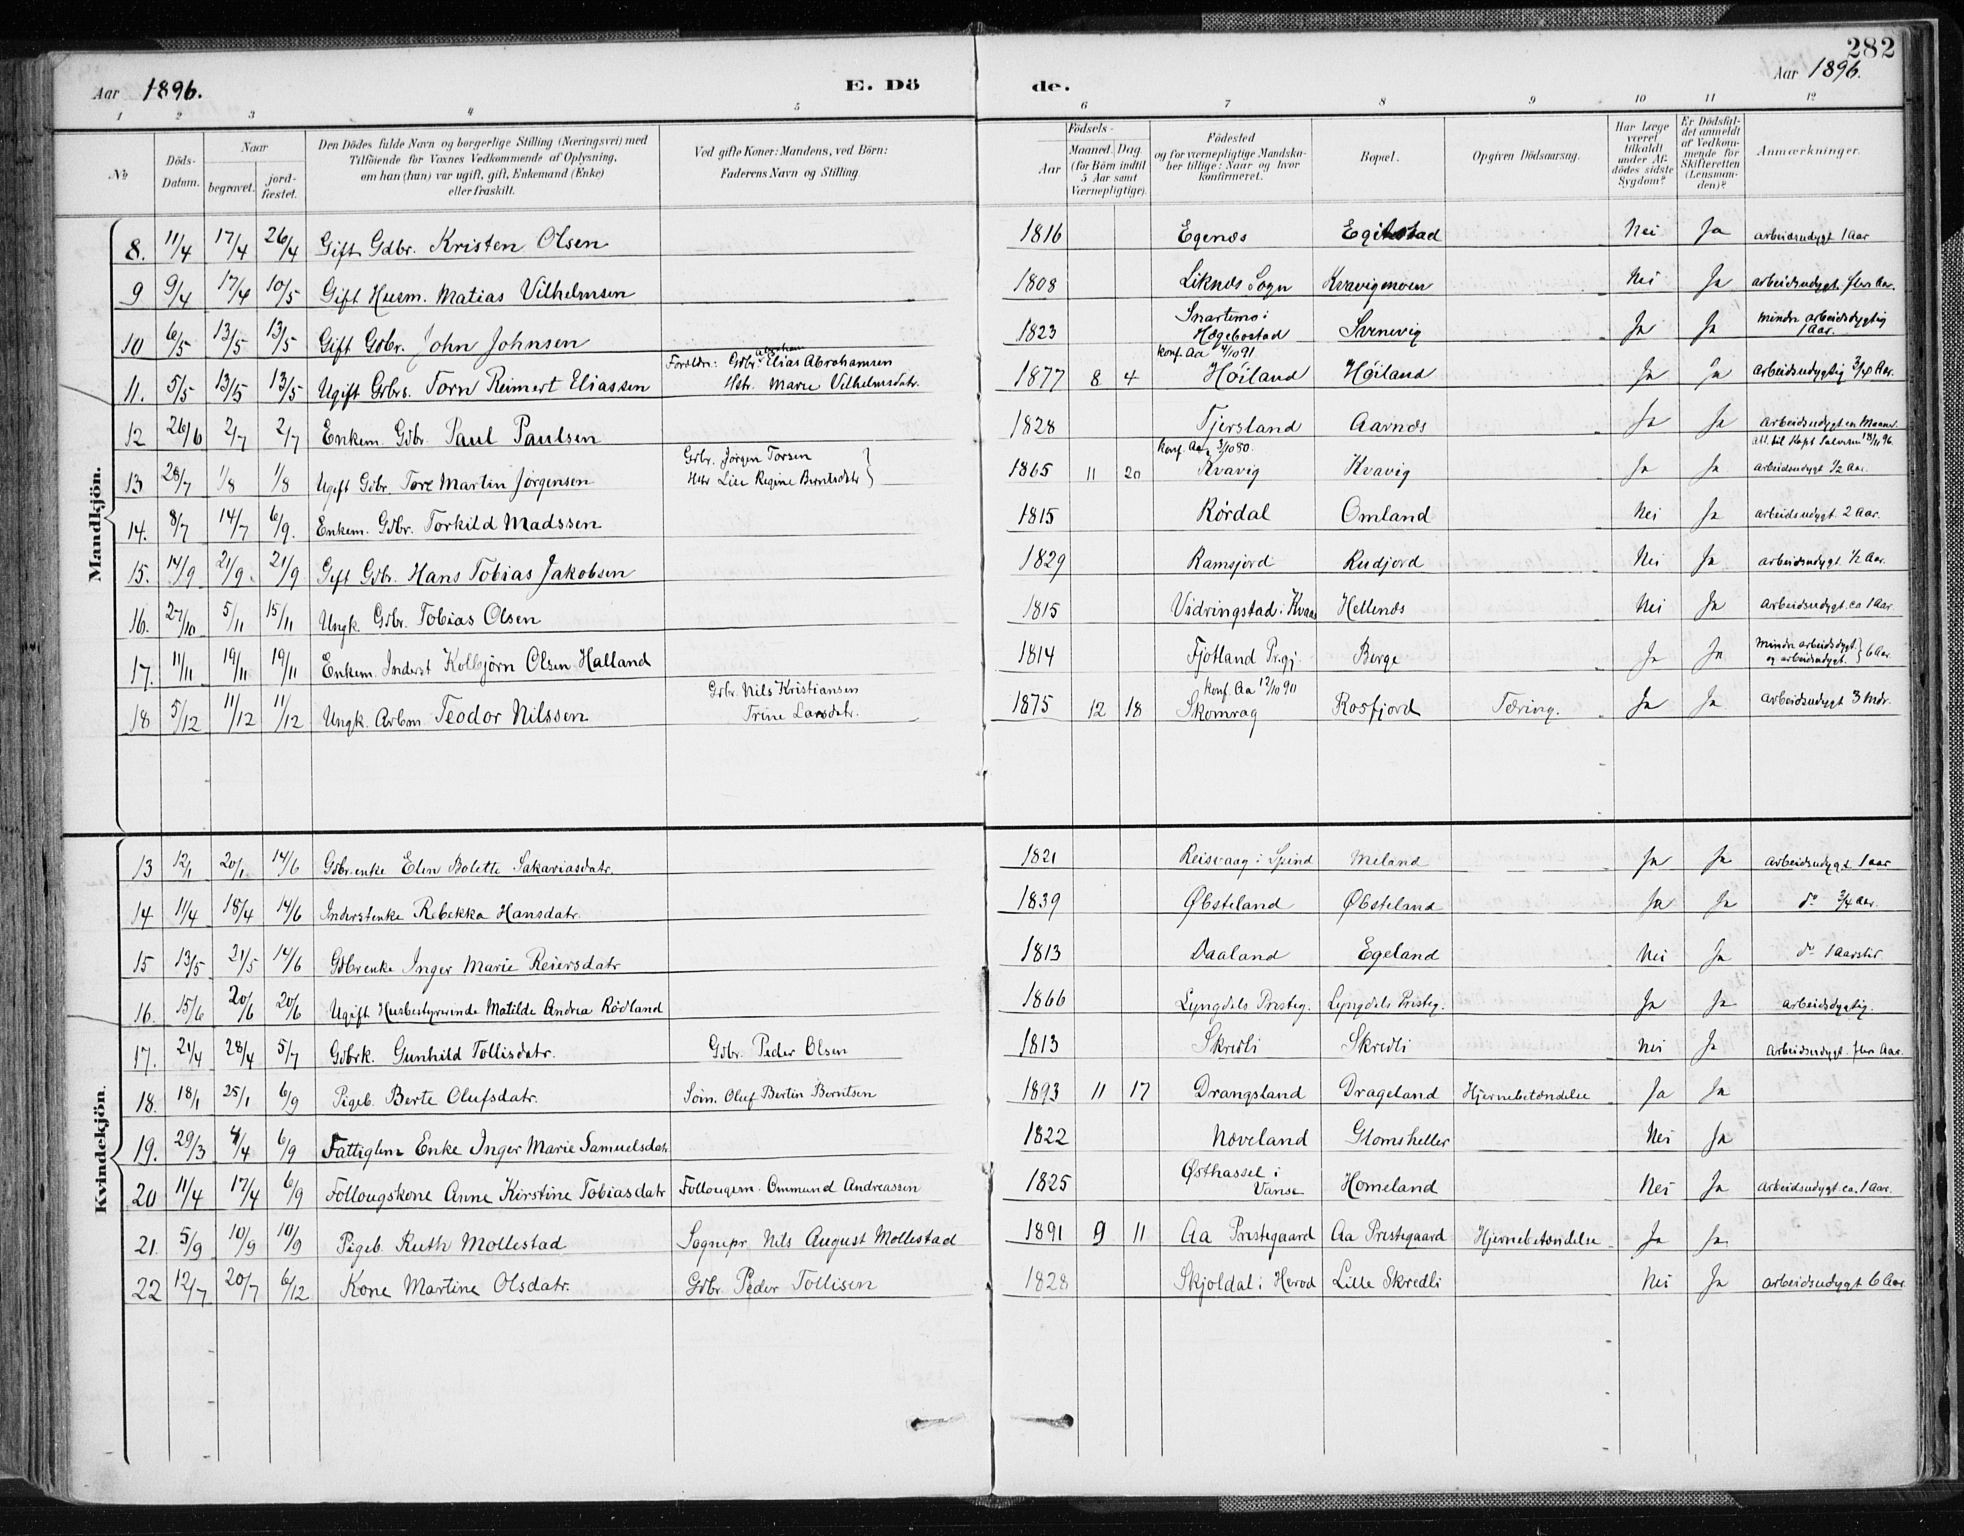 282
Aar 1896. E. Dö de. Aar 1896.
1 2 3 4 5 6 7 8 9 10 11 12
No
Döds-Datum.
Naar
begravet. jord-fæstet.
Den Dödes fulde Navn og borgerlige Stilling (Næringsvei) med
Tilföiende for Voxnes Vedkommende af Oplysning,
om han (hun) var ugift, gift, Enkemand (Enke)
eller fraskilt.
Ved gifte Koner: Mandens, ved Börn:
Faderens Navn og Stilling.
Födsels-
Aar
Maaned. Dag.
(for Börn indtil
5 Aar samt
Værnepligtige).
Födested
og for værnepligtige Mandska-
ber tillige: Naar og hvor
konfirmeret.
Bopæl.
Opgiven Dödsaarsag.
Har Læge
været
tilkaldt
under Af-
dödes sidste
Sygdom?
Er Dödsfal-
det anmeldt
af Vedkom-
mende for
Skifteretten
(Lensman-
den)?
Anmærkninger.
Mandkjön.
8. 11/4 17/4 26/4 Gift Gdbr. Kristen Olsen 1816 Egenæs Egikstad Nei Ja arbeidsudygt 1 Aar
9 9/4 17/4 10/5 Gift Husm. Matias Vilhelmsen 1808 Liknæs Sogn Kvavigmoen Nei Ja arbeidsudygt. flere Aar.
10 6/5 13/5 13/5 Gift Gdbr. John Johnsen 1823 Snartemo i Hægebostad Svenevig Ja Ja mindre arbeidsdygtig 1 Aar.
11. 5/5 13/5 13/5 Ugift Grbrs. Torn Reimert Eliassen Foreldr: Grbr. Abraham Elias Abrahamsen Hstr. Marie Vilhelmsdatr. 1877 8 4 konf. Aa 4/10 91 Höiland Höiland Ja Ja arbeidsudygtig 3/4 Aar.
12 26/6 2/7 2/7 Enkem. Gdbr. Paul Paulsen 1828 Tjersland Aarnes Ja Ja arbeidsudygt en Maaned.
13 28/7 1/8 1/8 Ugift Gdbr. Tore Martin Jörgensen Grbr. Jörgen Torsen Hstr Lise Regine Berntsdatr } 1865 11 20 konf. Aa 3/10 80. Kvavig Kvavig Ja Ja att. til Kapt Salvesen 13/11 96. arbeidsudygt 1/2 Aar.
14. 8/7 14/7 6/9. Enkem. Gdbr. Torkild Madssen 1815 Rördal Omland Nei Ja arbeidsudygt. 2 Aar.
15. 14/9 21/9. 21/9 Gift Gdbr. Hans Tobias Jakobsen 1829 Ramsjord Rudjord Nei Ja arbeidsudygt. 1/2 Aar.
16. 27/10 5/11 15/11 Ungk. Gdbr. Tobias Olsen 1815 Vidringstad i Kvaas Hellenæs Nei Ja arbeidsudygt. ca 1 Aar.
17. 11/11 19/11 19/11 Enkem. Inderst Kolbjörn Olsen Halland 1814 Fjotland Prgj. Berge Ja Ja mindre arbeidsdygt. og arbeidsudygt. } 6 Aar.
18 5/12 11/12 11/12 Ungk. Arbm. Teodor Nilssen Grbr. Nils Kristiansen Trine Larsdatr. 1875 12 18 konf. Aa 12/10 90 Skomrag Rosfjord Tæring. Ja Ja arbeidsudygt 3 Mdr.
Kvindekjön.
13 12/1 20/1 14/6 Gdbr.enke Elen Bolette Sakariasdatr. 1821 Reisvaag i Spind Meland Ja Ja arbeidsudygt. 1 aar
14 11/4 18/4 14/6 Inderstenke Rebekka Hansdatr. 1839 Øbsteland Øbsteland Ja Ja do 3/4 aar.
15 13/5 21/5 14/6 Gdbrenke Inger Marie Reiersdatr 1813 Daaland Egeland Nei Ja do 1 Aarstid
16. 15/6 20/6 20/6 Ugift Husbestyrerinde Matilde Andrea Rödland 1866 Lyngdals Presteg. Lyngdals Presteg. Ja Ja arbeidsdygtig.
17. 21/4 28/4 5/7 Gdbrk. Gunhild Tollisdatr. Gdbr. Peder Olsen 1813 Skredli Skredli Nei Ja Arbeidsudygt. flere Aar.
18. 18/1 25/1 6/9 Pigeb. Berte Olufsdatr. Söm. Oluf Bertin Berntsen 1893 11 17 Drangsland Drageland Hjernebetændelse Ja Ja
19. 29/3 4/4 6/9 Fattiglem Enke Inger Marie Samuelsdatr 1822 Næveland Glomsheller Nei Ja
20 11/4 17/4 6/9 Follougskone Anne Kirstine Tobiasdatr Follougsm. Ommund Andreassen 1825 Østhassel i Vanse Homeland Nei Ja arbeidsudygt ca. 1 Aar.
21. 5/9 10/9 10/9 Pigeb. Ruth Mollestad Sognepr. Nils August Mollestad 1891 9 11 Aa Prestegaard Aa Prestegaard Hjernebetændelse Ja Ja
22 12/7 20/7 6/12 Kone Martine Olsdatr. Gdbr. Peder Tollisen 1828 Skjoldal i Herod Lille Skredli Nei Ja arbeidsudygt 6 Aar